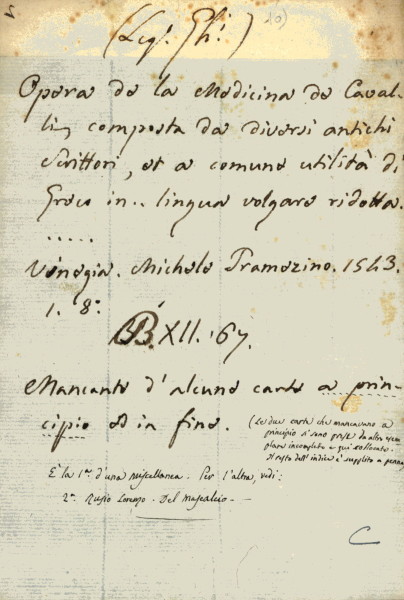 (Leg. Gh.)
10)
Opera de la Medicina de Caval-
li, composta da diversi antichi
Scrittori, et a comune utilità di
Greco in.. lingua volgare ridotta.
.....
Venegia. Michele Tramezino. 1543.
1. 8°.
BB. XII. 67.
Mancante d'alcune carte a prin-
cipio ed in fine.
(Le due carte che mancavano a
principio si sono prese da altro esem-
plare incompleto e qui collocate.
Il resto dell'indice è supplito a penna)
È la 1ma d'una miscellanea. Per l'altra, vedi:
2a Rusio Lorenzo. Del Mascalcio.
C